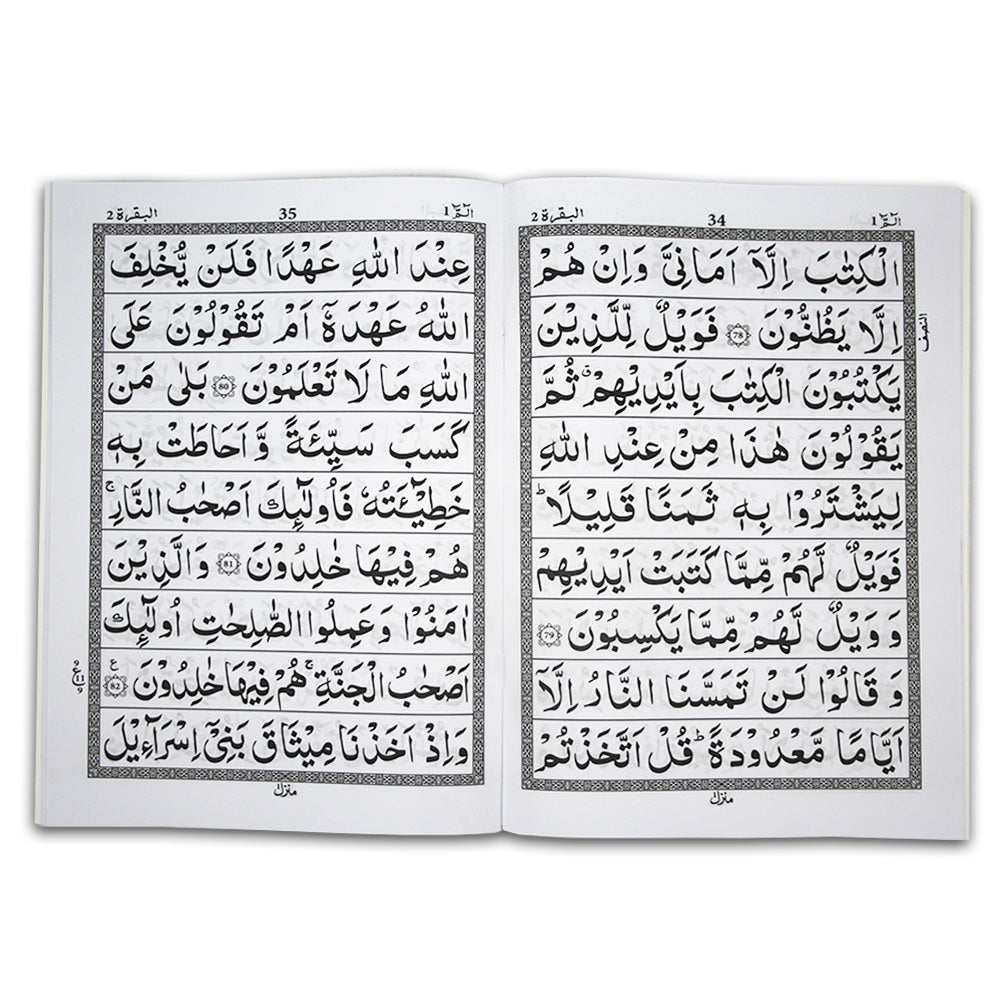 الٓمّٓ 1
34
البقرة 2
الْكِتٰبَ اِلَّآ اَمَانِيَّ وَاِنْ هُمْ
اِلَّا يَظُنُّوْنَ 78 فَوَيْلٌ لِّلَّذِيْنَ
النصف
يَكْتُبُوْنَ الْكِتٰبَ بِاَيْدِيْهِمْ ۗ ثُمَّ
يَقُوْلُوْنَ هٰذَا مِنْ عِنْدِ اللّٰهِ
لِيَشْتَرُوْا بِهٖ ثَمَنًا قَلِيْلًا ؕ
فَوَيْلٌ لَّهُمْ مِّمَّا كَتَبَتْ اَيْدِيْهِمْ
وَ وَيْلٌ لَّهُمْ مِّمَّا يَكْسِبُوْنَ 79
وَ قَالُوْا لَنْ تَمَسَّنَا النَّارُ اِلَّآ
اَيَّامًا مَّعْدُوْدَةً ؕ قُلْ اَتَّخَذْتُمْ
منزل
الٓمّٓ 1
35
البقرة 2
عِنْدَ اللّٰهِ عَهْدًا فَلَنْ يُّخْلِفَ
اللّٰهُ عَهْدَهٗٓ اَمْ تَقُوْلُوْنَ عَلَى
اللّٰهِ مَا لَا تَعْلَمُوْنَ 80 بَلٰى مَنْ
كَسَبَ سَيِّئَةً وَّ اَحَاطَتْ بِهٖ
خَطِيْٓـَٔتُهٗ فَاُولٰٓئِكَ اَصْحٰبُ النَّارِ ۚ
هُمْ فِيْهَا خٰلِدُوْنَ 81 وَالَّذِيْنَ
اٰمَنُوْا وَ عَمِلُوا الصّٰلِحٰتِ اُولٰٓئِكَ
اَصْحٰبُ الْجَنَّةِ ۚ هُمْ فِيْهَا خٰلِدُوْنَ 82 ع
وَاِذْ اَخَذْنَا مِيْثَاقَ بَنِيْٓ اِسْرَآءِيْلَ
منزل